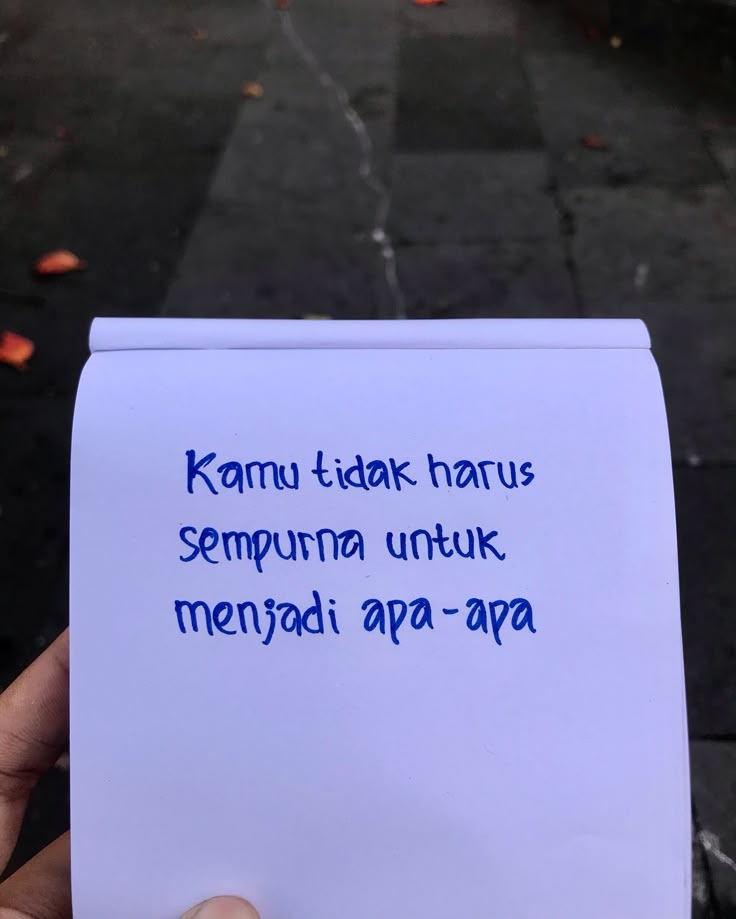 Kamu tidak harus
sempurna untuk
menjadi apa-apa